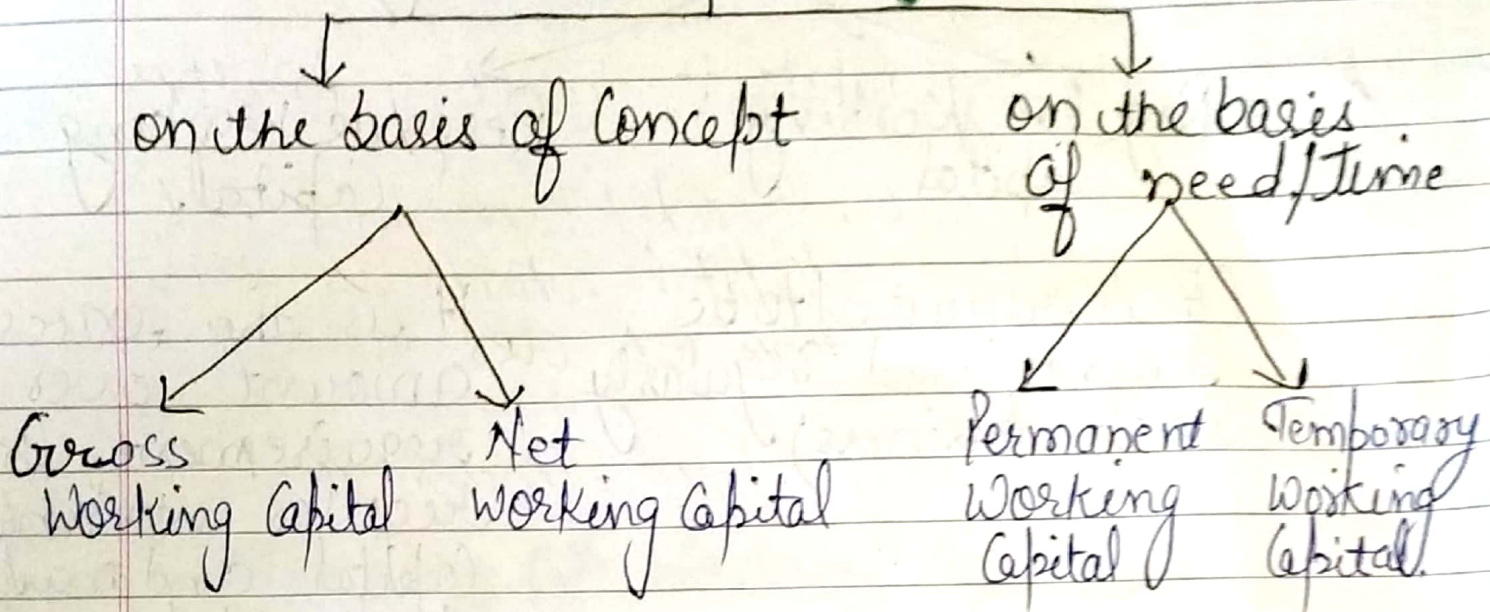 on the basis of Concept
on the basis
of need/Time
Gross
Working Capital
Net
Working Capital
Permanent
Working
Capital
Temporary
Working
Capital.